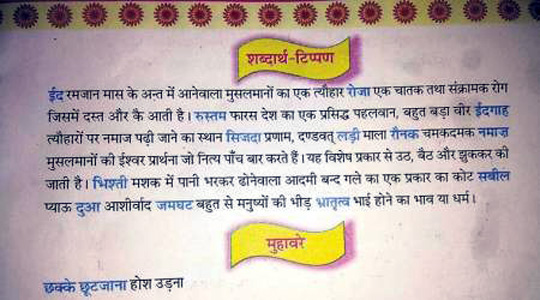 शब्दार्थ-टिप्पण
ईद रमजान मास के अन्त में आनेवाला मुसलमानों का एक त्यौहार रोजा एक चातक तथा संक्रामक रोग
जिसमें दस्त और कै आती है। रुस्तम फारस देश का एक प्रसिद्ध पहलवान, बहुत बड़ा वीर ईदगाह
त्यौहारों पर नमाज पढ़ी जाने का स्थान सिजदा प्रणाम, दण्डवत् लड़ी माला रौनक चमकदमक नमाज़
मुसलमानों की ईश्वर प्रार्थना जो नित्य पाँच बार करते हैं। यह विशेष प्रकार से उठ, बैठ और झुककर की
जाती है। भिश्ती मशक में पानी भरकर ढोनेवाला आदमी बन्द गले का एक प्रकार का कोट सबील
प्याऊ दुआ आशीर्वाद जमघट बहुत से मनुष्यों की भीड़ भ्रातृत्व भाई होने का भाव या धर्म।
मुहावरे
छक्के छूटजाना होश उड़ना